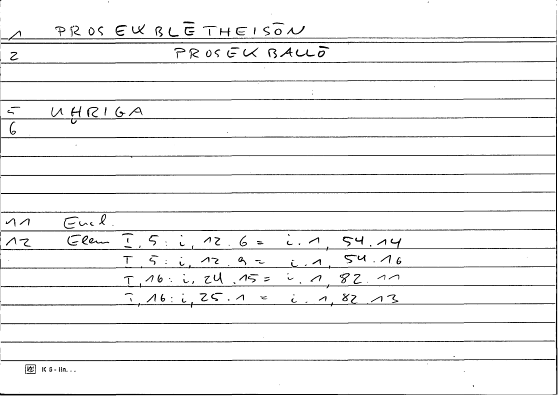 1 PROSEKBLĒTHEISŌN
2 PROSEKBALLŌ
5 UHRIGA
6
11 Eucl.
12 Elem I, 5: i, 12.6 = i.1, 54.14
I, 5: i, 12.9 = i.1, 54.16
I, 16: i, 24.15 = i.1, 82.11
I, 16: i, 25.1 = i.1, 82.13
K 6 - lin...